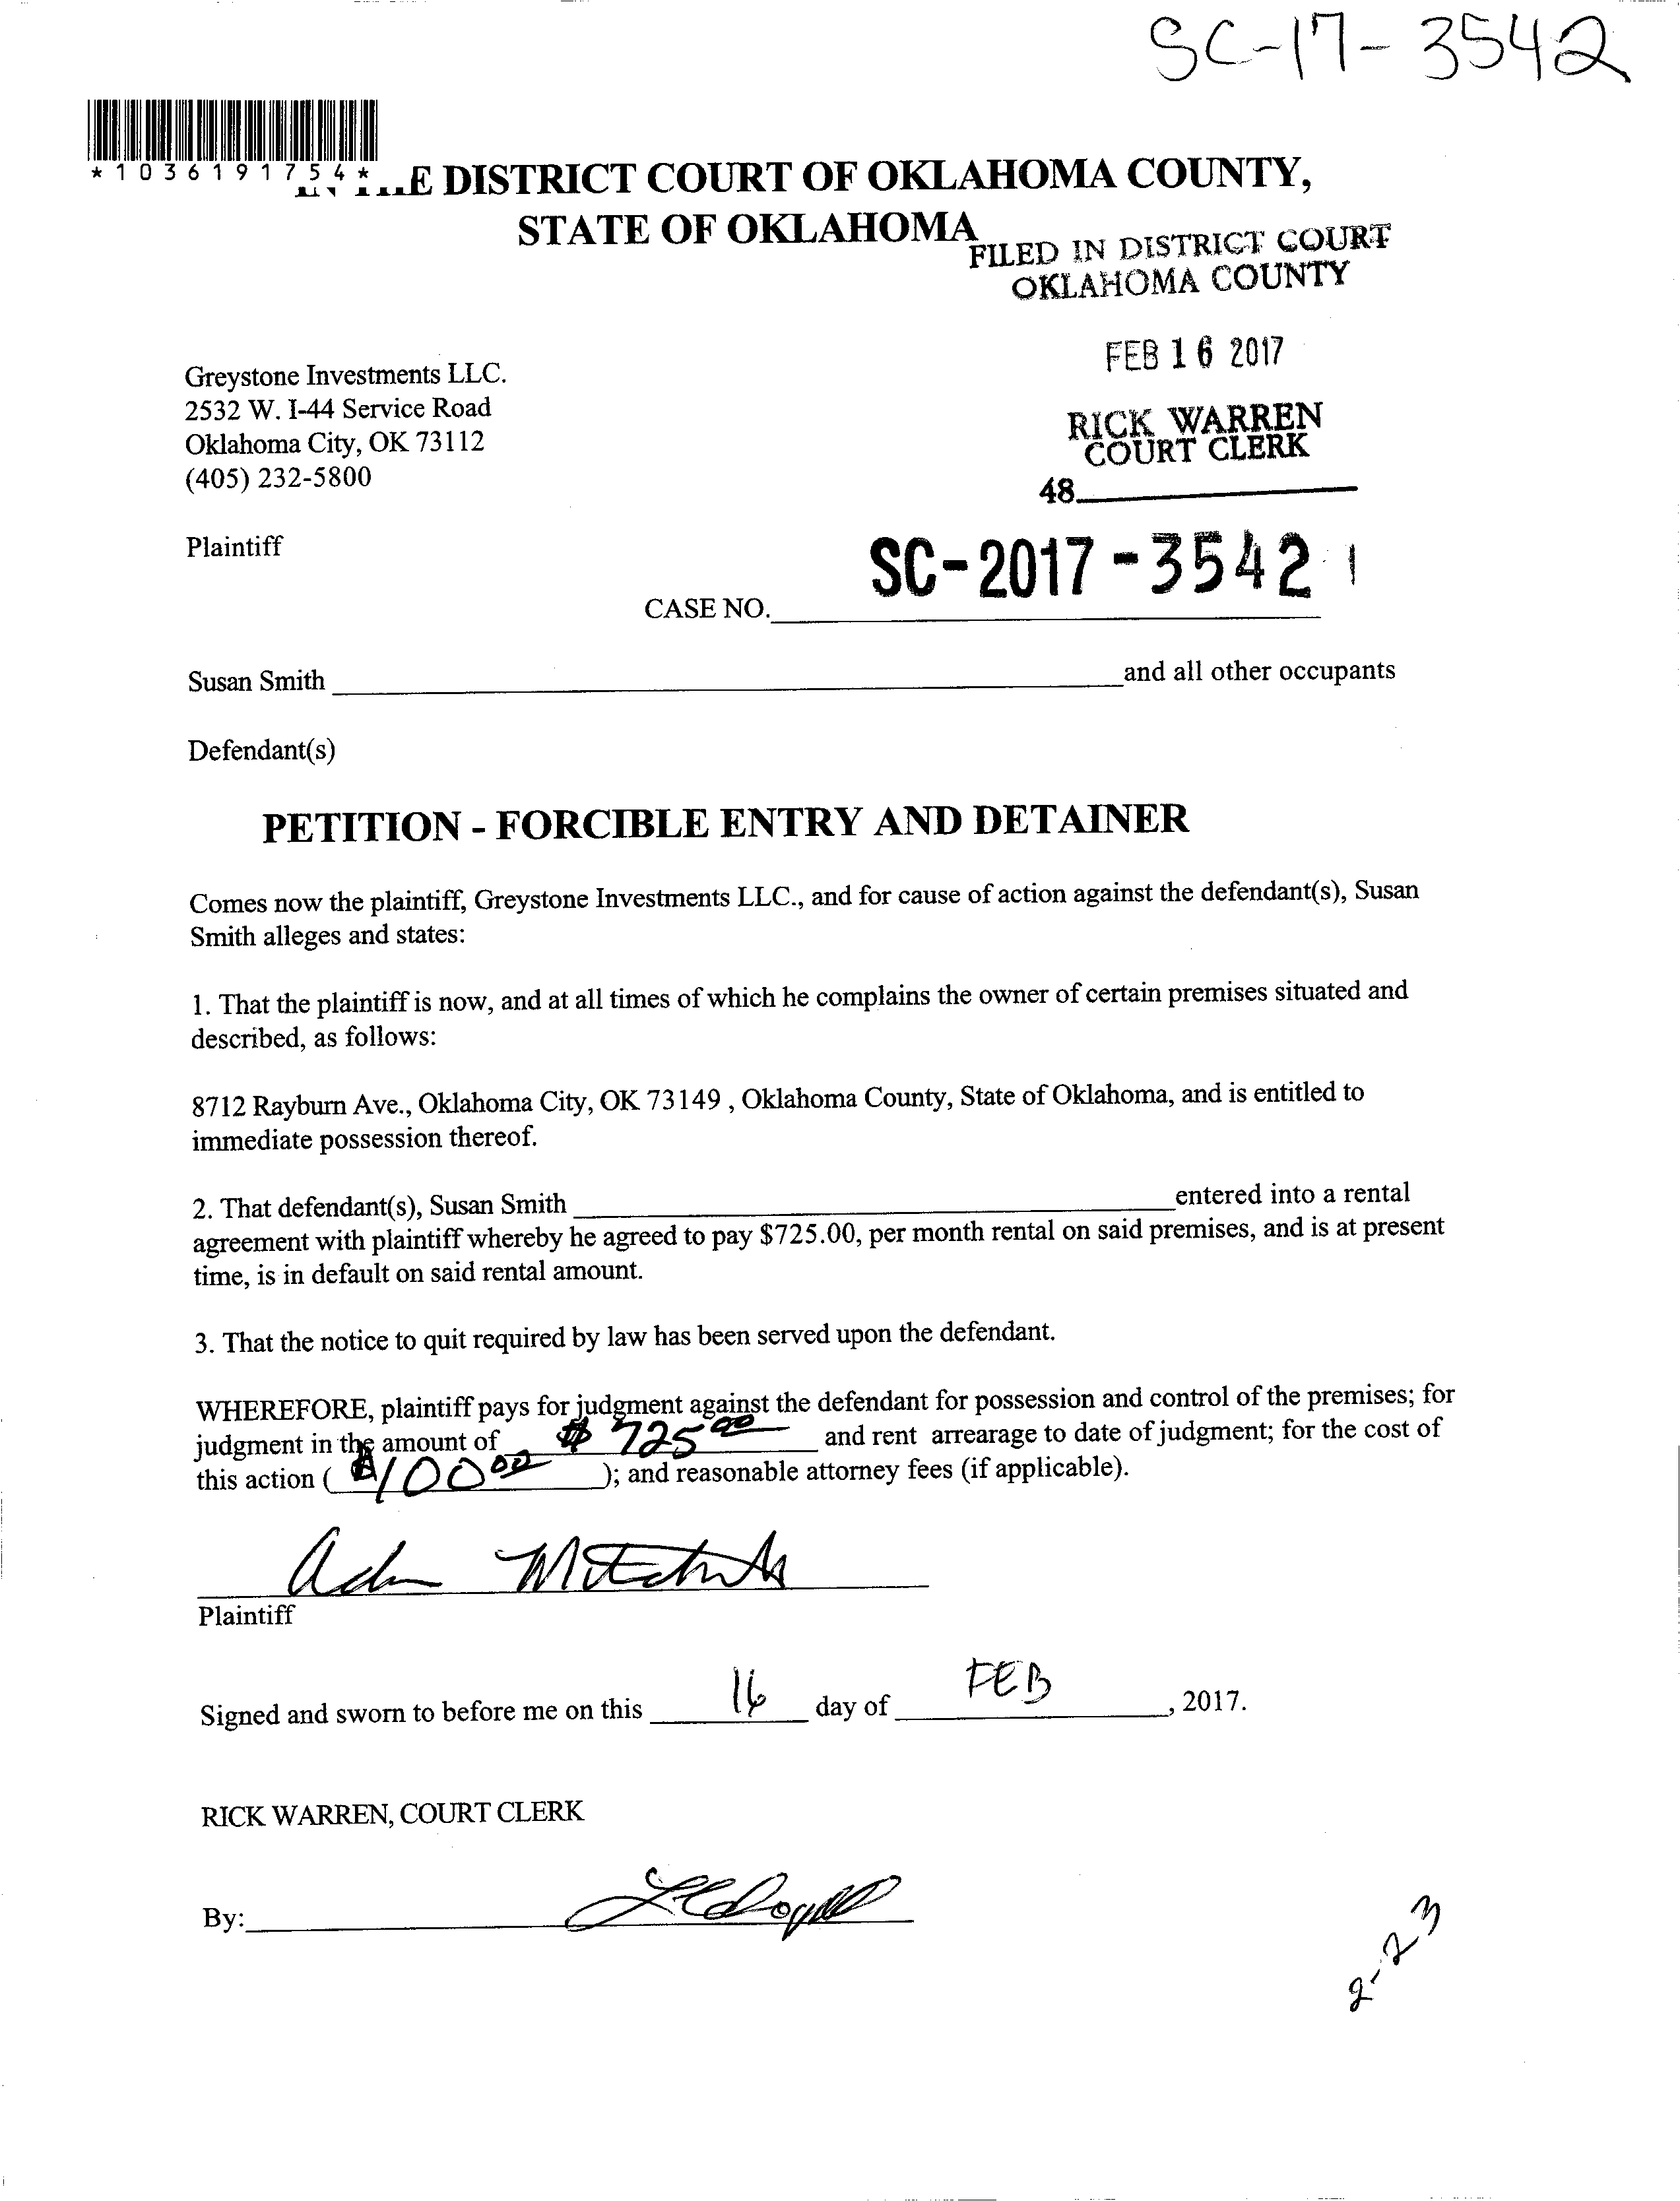 SC-17-3542
*1036191754*
E DISTRICT COURT OF OKLAHOMA COUNTY,
STATE OF OKLAHOMA
FILED IN DISTRICT COURT
OKLAHOMA COUNTY
FEB 16 2017
RICK WARREN
COURT CLERK
48
Greystone Investments LLC.
2532 W. I-44 Service Road
Oklahoma City, OK 73112
(405) 232-5800
Plaintiff
SC-2017-3542
CASE NO.
Susan Smith and all other occupants
Defendant(s)
PETITION - FORCIBLE ENTRY AND DETAINER
Comes now the plaintiff, Greystone Investments LLC., and for cause of action against the defendant(s), Susan
Smith alleges and states:
1. That the plaintiff is now, and at all times of which he complains the owner of certain premises situated and
described, as follows:
8712 Rayburn Ave., Oklahoma City, OK 73149 , Oklahoma County, State of Oklahoma, and is entitled to
immediate possession thereof.
2. That defendant(s), Susan Smith entered into a rental
agreement with plaintiff whereby he agreed to pay $725.00, per month rental on said premises, and is at present
time, is in default on said rental amount.
3. That the notice to quit required by law has been served upon the defendant.
WHEREFORE, plaintiff pays for judgment against the defendant for possession and control of the premises; for
judgment in the amount of $ 725 00 and rent arrearage to date of judgment; for the cost of
this action ( $100 00 ); and reasonable attorney fees (if applicable).
Plaintiff
Signed and sworn to before me on this 16 day of FEB , 2017.
RICK WARREN, COURT CLERK
By:
2-23